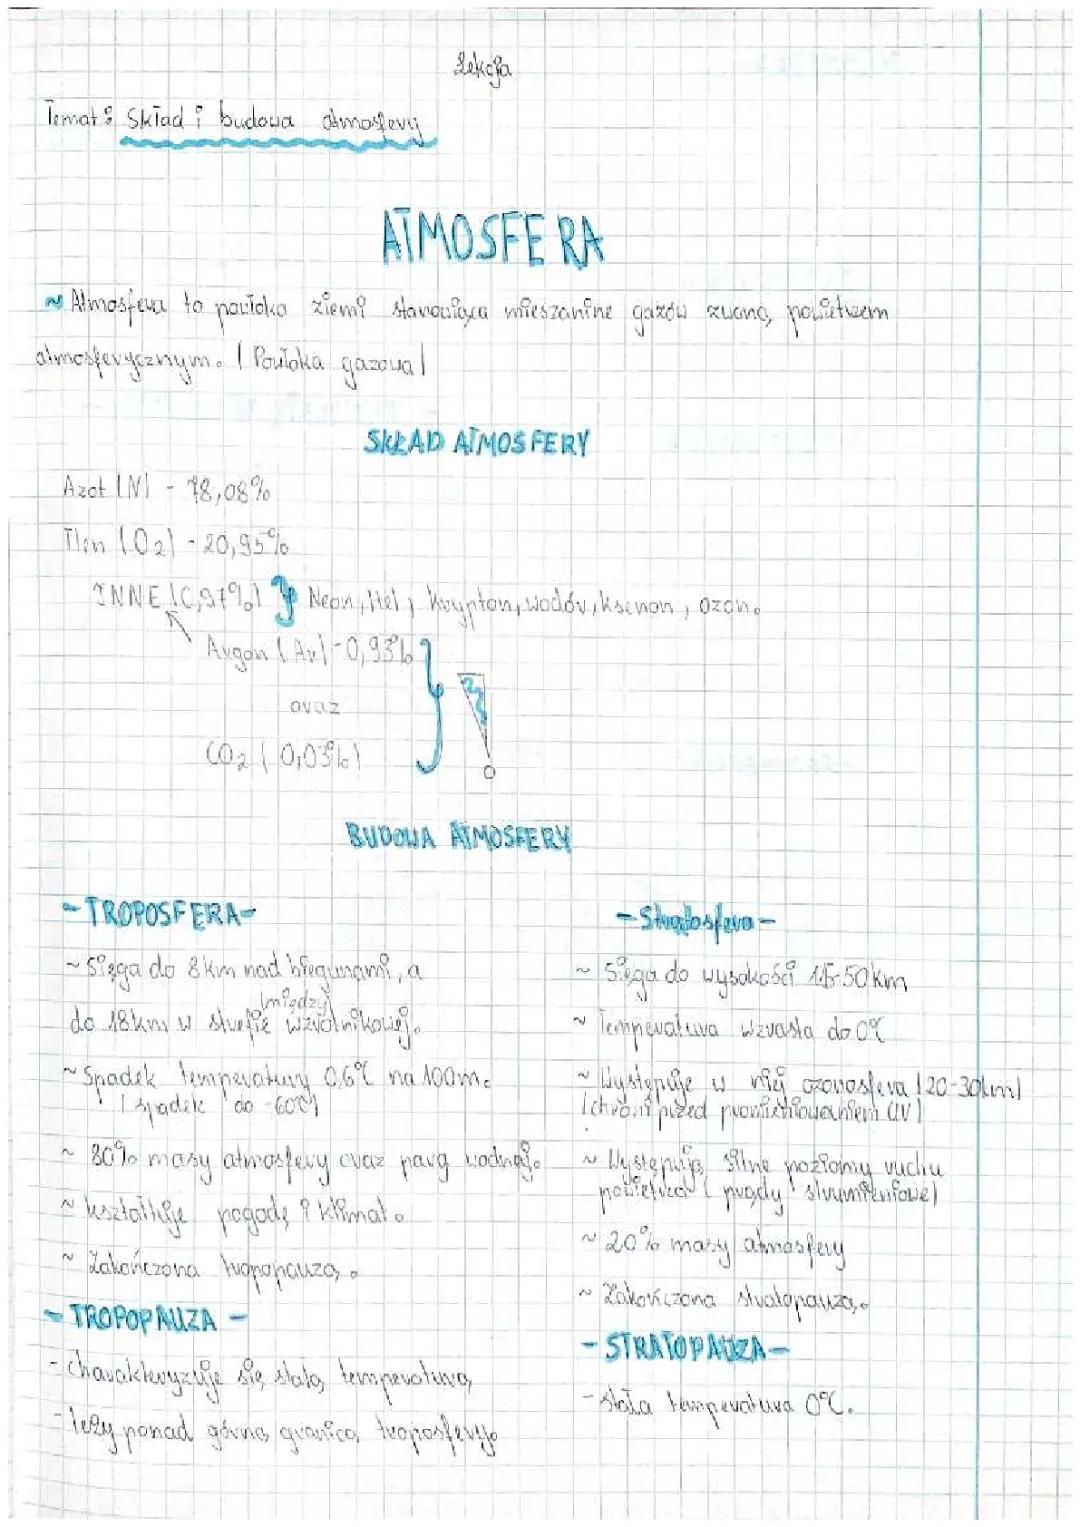 Lekcja
Temat: Skład i budowa atmosfery
ATMOSFERA
~ Atmosfera to powłoka ziemi stanowiąca mieszanine gazów zwaną powietrzem
atmosferycznym. (Powłoka gazowa)
SKŁAD ATMOSFERY
Azot (N) - 78,08%
Tlen (O2) - 20,95%
INNE (0,97%) } Neon, Hel, Krypton, wodór, ksenon, ozon.
Argon (Ar) - 0,93%
oraz
CO2 (0,03%)
BUDOWA ATMOSFERY
- TROPOSFERA -
~ Sięga do 8km nad biegunami, a
(między)
do 18km w strefie wzrotnikowej.
~ Spadek temperatury 0,6°C na 100m.
(spadek do -60°C)
~ 80% masy atmosfery oraz parą wodnej.
~ kształtuje pogodę i klimat.
~ Zakończona tropopauzą.
- TROPOPAUZA -
- charakteryzuje się stałą temperaturą,
- leży ponad górną granicą troposfery.
- Stratosfera -
~ Sięga do wysokości 15-50km
~ Temperatura wzrasta do 0°C
~ Występuje w niej ozonosfera (20-30km)
(chroni przed promieniowaniem UV)
~ Występują silne poziomy ruchu
powietrza (prądy strumieniowe)
~ 20% masy atmosfery
~ Zakończona stratopauzą.
- STRATOPAUZA -
- stała temperatura 0°C.